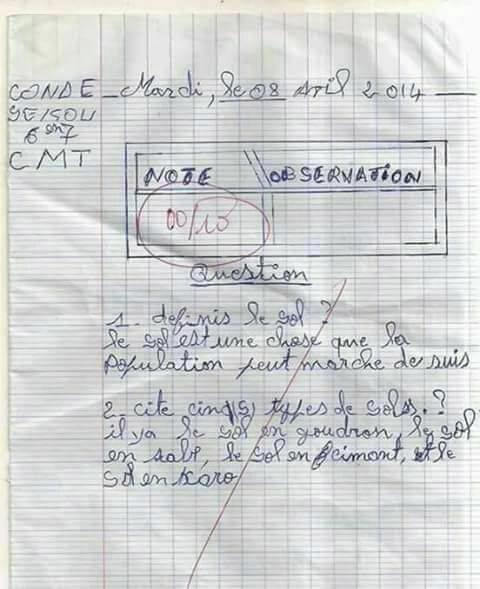 CONDE Mardi, le 08 Avril 2014
SEISOU
6en7
CMT
NOTE OBSERVATION
00/10
Question
1. definis le sol ?
le sol est une chose que la
Population peut marche de suis
2. cite cinq (5) types de sols. ?
il ya le sol en goudron, le sol
en sable, le sol en cimont, et le
sol en Karo